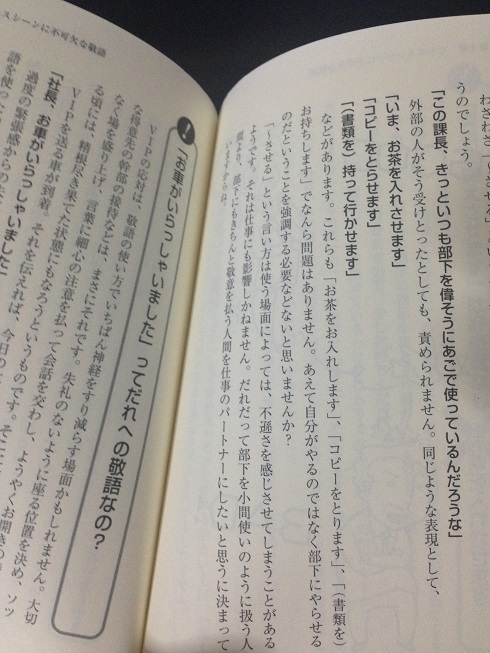 うのでしょう。
「この課長、きっといつも部下を偉そうにあごで使っているんだろうな」
外部の人がそう受けとったとしても、責められません。同じような表現として、
「いま、お茶を入れさせます」
「コピーをとらせます」
「（書類を）持って行かせます」
などがあります。これらも「お茶をお入れします」、「コピーをとります」、「（書類を）
お持ちします」でなんら問題はありません。あえて自分がやるのではなく部下にやらせる
のだということを強調する必要などないと思いませんか？
「〜させる」という言い方は使う場面によっては、不遜さを感じさせてしまうことがある
ようです。それは仕事にも影響しかねません。だれだって部下を小間使いのように扱う人
間より、部下にもきちんと敬意を払う人間を仕事のパートナーにしたいと思うに決まって
いますからね。
スシーンに不可欠な敬語
！
「お車がいらっしゃいました」ってだれへの敬語なの？
VIPの応対は、敬語の使い方でいちばん神経をすり減らす場面かもしれません。大切
な得意先の幹部の接待などは、まさにそれです。失礼のないように座る位置を決め、ソツ
なく場を盛り上げ、言葉に細心の注意を払って会話を交わし、ようやくお開きの
る頃には、精根尽き果てた状態にもなろうというものです。そこに
VIPを送る車が到着。それを伝えれば、今日の
「社長、お車がいらっしゃいました」
過度の緊張感からの
語を使った